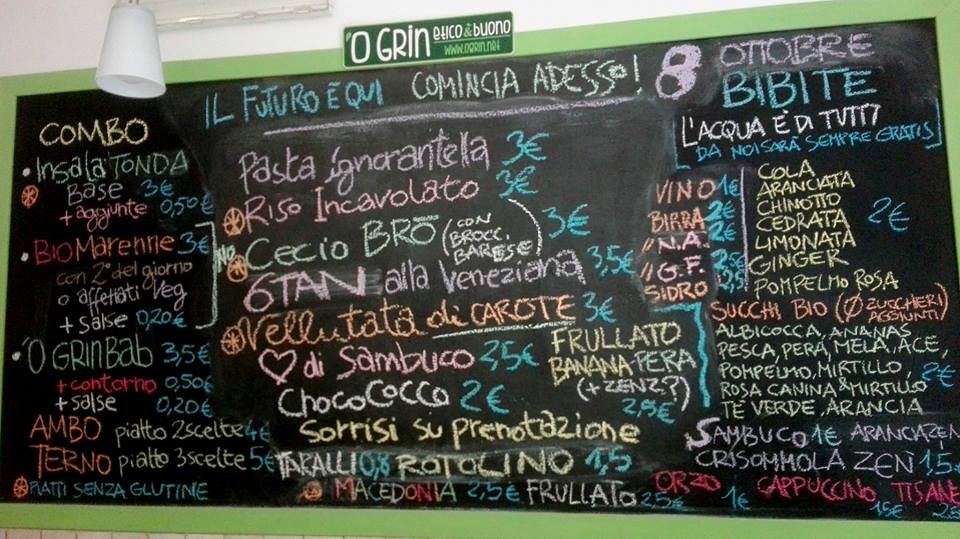 'O GRIN etico è buono
www.ogrin.net
IL FUTURO È QUI COMINCIA ADESSO!
8 OTTOBRE
COMBO
• InsalaTONDA
Base 3€
+ aggiunte 0,50€
• BIOMarenne 3€
con 2° del giorno
o affettati Veg
+ salse 0,20€
NO
• 'O GRINBab 3,5€
+ contorno 0,50€
+ salse 0,20€
AMBO piatto 2 scelte 4€
TERNO piatto 3 scelte 5€
PIATTI SENZA GLUTINE
Pasta ignorantella 3€
Riso Incavolato 3€
Cecio BRÒ (CON BROCC. BARESE) 3€
6TAN alla Veneziana 3,5€
Vellutata di CAROTE 3€
♡ di Sambuco 2,5€
ChocoCocco 2€
FRULLATO
BANANA PERA
(+ ZENZ?)
2,5€
Sorrisi su prenotazione
TARALLI 0,8 ROTOLINO 1,5
MACEDONIA 2,5€ FRULLATO 2,5€
BIBITE
[L'ACQUA È DI TUTTI
DA NOI SARÀ SEMPRE GRATIS]
VINO 1€
BIRRA 2€
" N.A. 2€
" G.F. 2,5€
SIDRO 2,5
COLA
ARANCIATA
CHINOTTO
CEDRATA 2€
LIMONATA
GINGER
POMPELMO ROSA
SUCCHI BIO (Ø ZUCCHERI AGGIUNTI)
ALBICOCCA, ANANAS
PESCA, PERA, MELA, ACE,
POMPELMO, MIRTILLO, 2€
ROSA CANINA & MIRTILLO
TÈ VERDE, ARANCIA
SAMBUCO 1€ ARANCIAZEN
CRISOMMOLA ZEN 1,5€
ORZO 1€ CAPPUCCINO 1,5€ TISANE